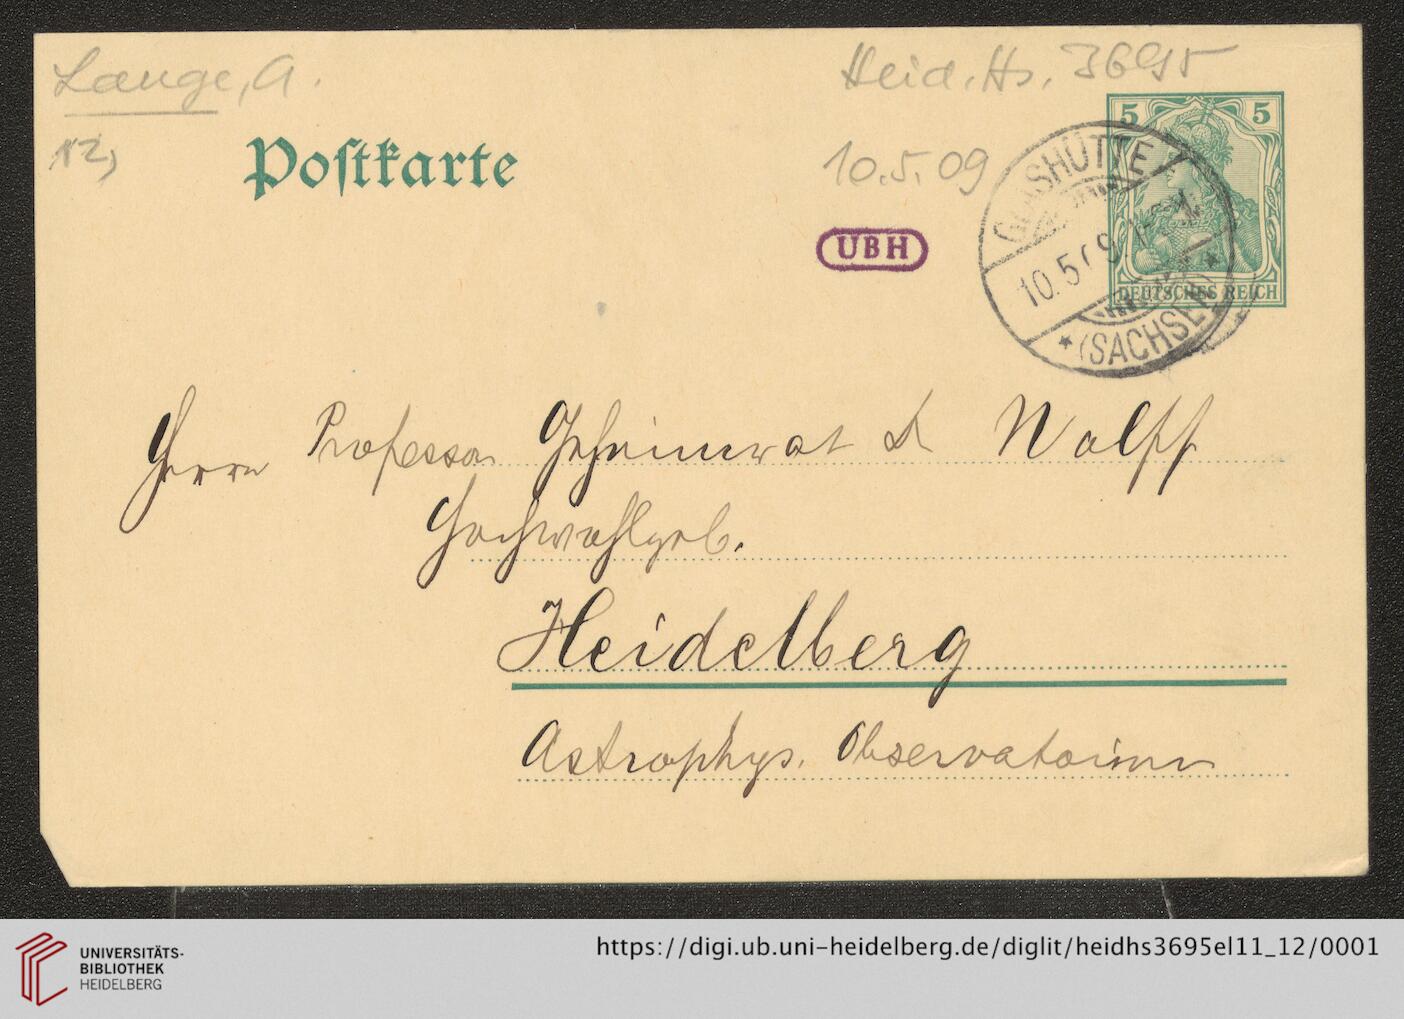 Lange, A.
Heid. Hs. 3695
12)
Postkarte
10.5.09
UBH
5 5
DEUTSCHES REICH
GLASHÜTTE
10.5.09
* (SACHSEN) *
Herrn Professor Geheimrat Dr Wolff
Hochwohlgeb.
Heidelberg
Astrophys. Observatorium
UNIVERSITÄTS-
BIBLIOTHEK
HEIDELBERG
https://digi.ub.uni-heidelberg.de/diglit/heidhs3695el11_12/0001